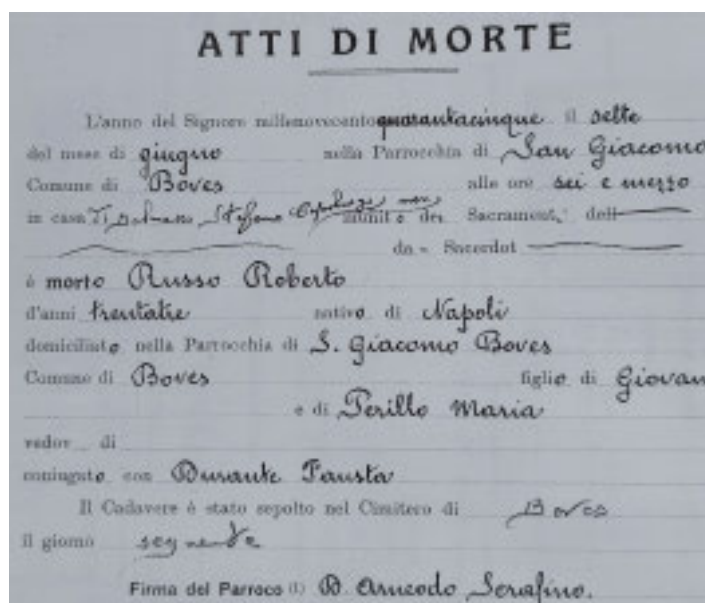 ATTI DI MORTE
L'anno del Signore millenovecentoquarantacinque il sette
del mese di giugno nella Parrocchia di San Giacomo
Comune di Boves alle ore sei e mezzo
in casa Stefano munito dei Sacrament. dell
da - Sacerdot
è morto Russo Roberto
d'anni trentatre nativo di Napoli
domiciliato nella Parrocchia di S. Giacomo Boves
Comune di Boves figlio di Giovan
e di Perillo Maria
vedov di
coniugato con Durante Fausta
Il Cadavere è stato sepolto nel Cimitero di Boves
il giorno segnente
Firma del Parroco (1) D. Arneodo Serafino.